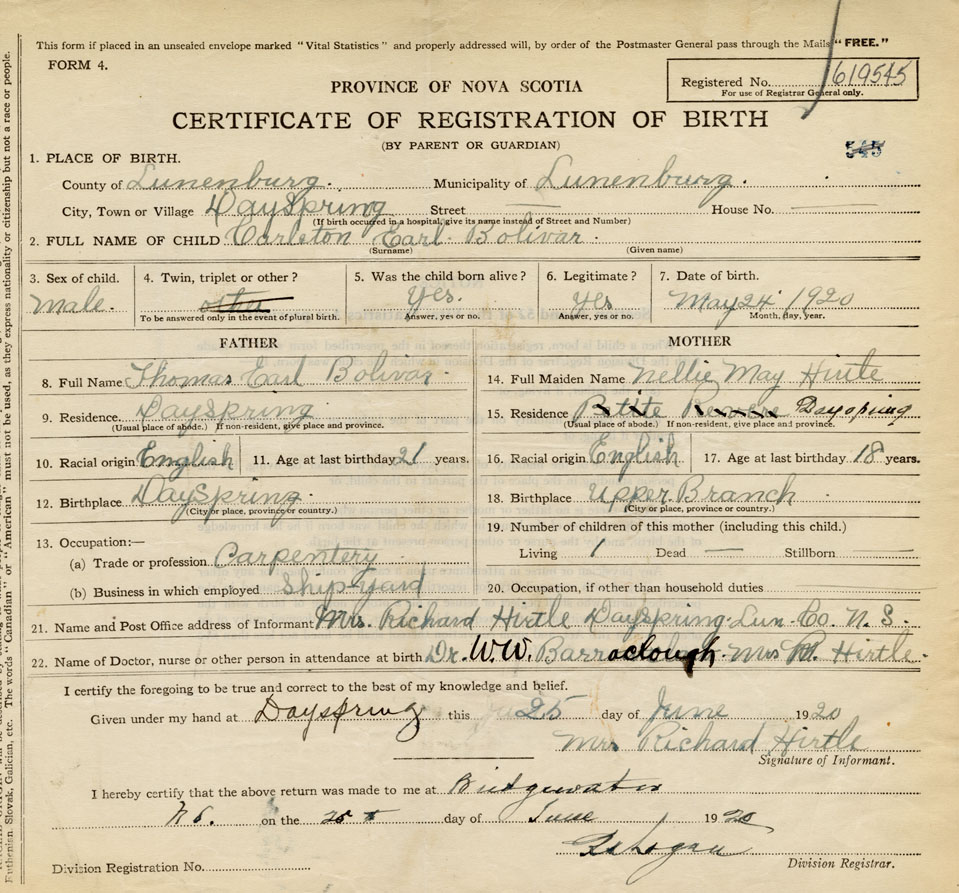 This form if placed in an unsealed envelope marked "Vital Statistics" and properly addressed will, by order of the Postmaster General pass through the Mails "FREE."
FORM 4.
Registered No. 619545
For use of Registrar General only.
PROVINCE OF NOVA SCOTIA
CERTIFICATE OF REGISTRATION OF BIRTH
(BY PARENT OR GUARDIAN)
545
1. PLACE OF BIRTH.
County of Lunenburg. Municipality of Lunenburg.
City, Town or Village DaySpring Street — House No. —
(If birth occurred in a hospital, give its name instead of Street and Number)
2. FULL NAME OF CHILD Carleton Earl Bolivar.
(Surname) (Given name)
3. Sex of child. 4. Twin, triplet or other? 5. Was the child born alive? 6. Legitimate? 7. Date of birth.
Male. other Yes. Yes May 24 1920
To be answered only in the event of plural birth. Answer, yes or no. Answer, yes or no. Month, day, year.
FATHER MOTHER
8. Full Name Thomas Earl Bolivar 14. Full Maiden Name Nellie May Hirtle
9. Residence. DaySpring 15. Residence Dayspring
(Usual place of abode.) If non-resident, give place and province. (Usual place of abode.) If non-resident, give place and province.
10. Racial origin English 11. Age at last birthday 21 years. 16. Racial origin English 17. Age at last birthday 18 years.
12. Birthplace DaySpring 18. Birthplace Upper Branch
(City or place, province or country.) (City or place, province or country.)
19. Number of children of this mother (including this child.)
13. Occupation:—
Living 1 Dead — Stillborn —
(a) Trade or profession Carpentery
(b) Business in which employed Ship-yard 20. Occupation, if other than household duties
21. Name and Post Office address of Informant Mrs. Richard Hirtle DaySpring Lun. Co. N. S.
22. Name of Doctor, nurse or other person in attendance at birth Dr. W.W. Barraclough Mrs R. Hirtle.
I certify the foregoing to be true and correct to the best of my knowledge and belief.
Given under my hand at Dayspring this 25 day of June 1920
Mrs Richard Hirtle
Signature of Informant.
I hereby certify that the above return was made to me at Bridgewater
N S. on the 25 day of June 1920
Division Registration No. Division Registrar.